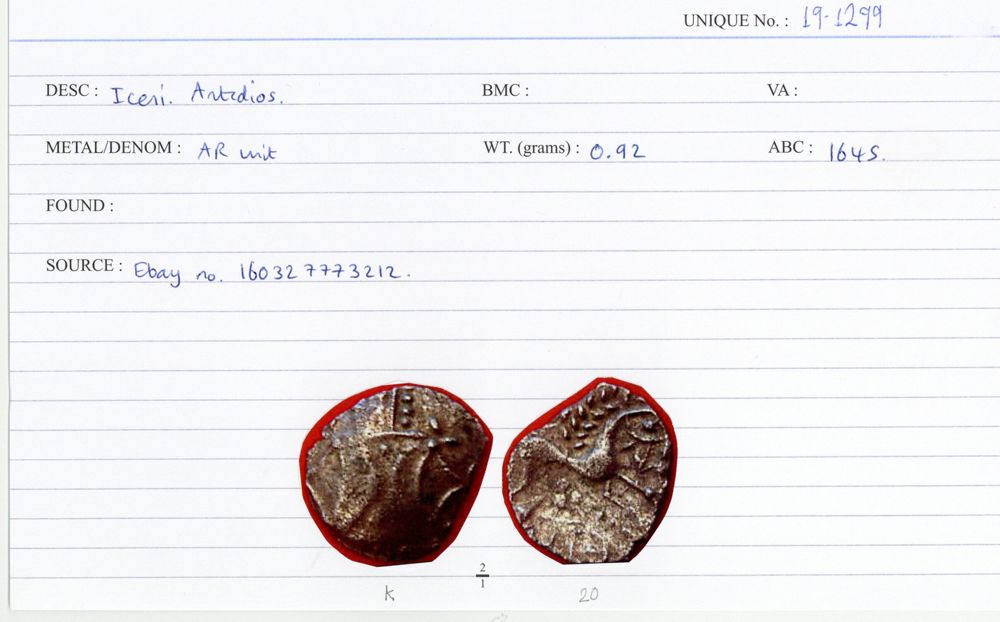 UNIQUE No. : 19-1299
DESC : Iceni. Antedios. BMC : VA :
METAL/DENOM : AR unit WT. (grams) : 0.92 ABC : 1645.
FOUND :
SOURCE : Ebay no. 160327773212.
2
1
K 20